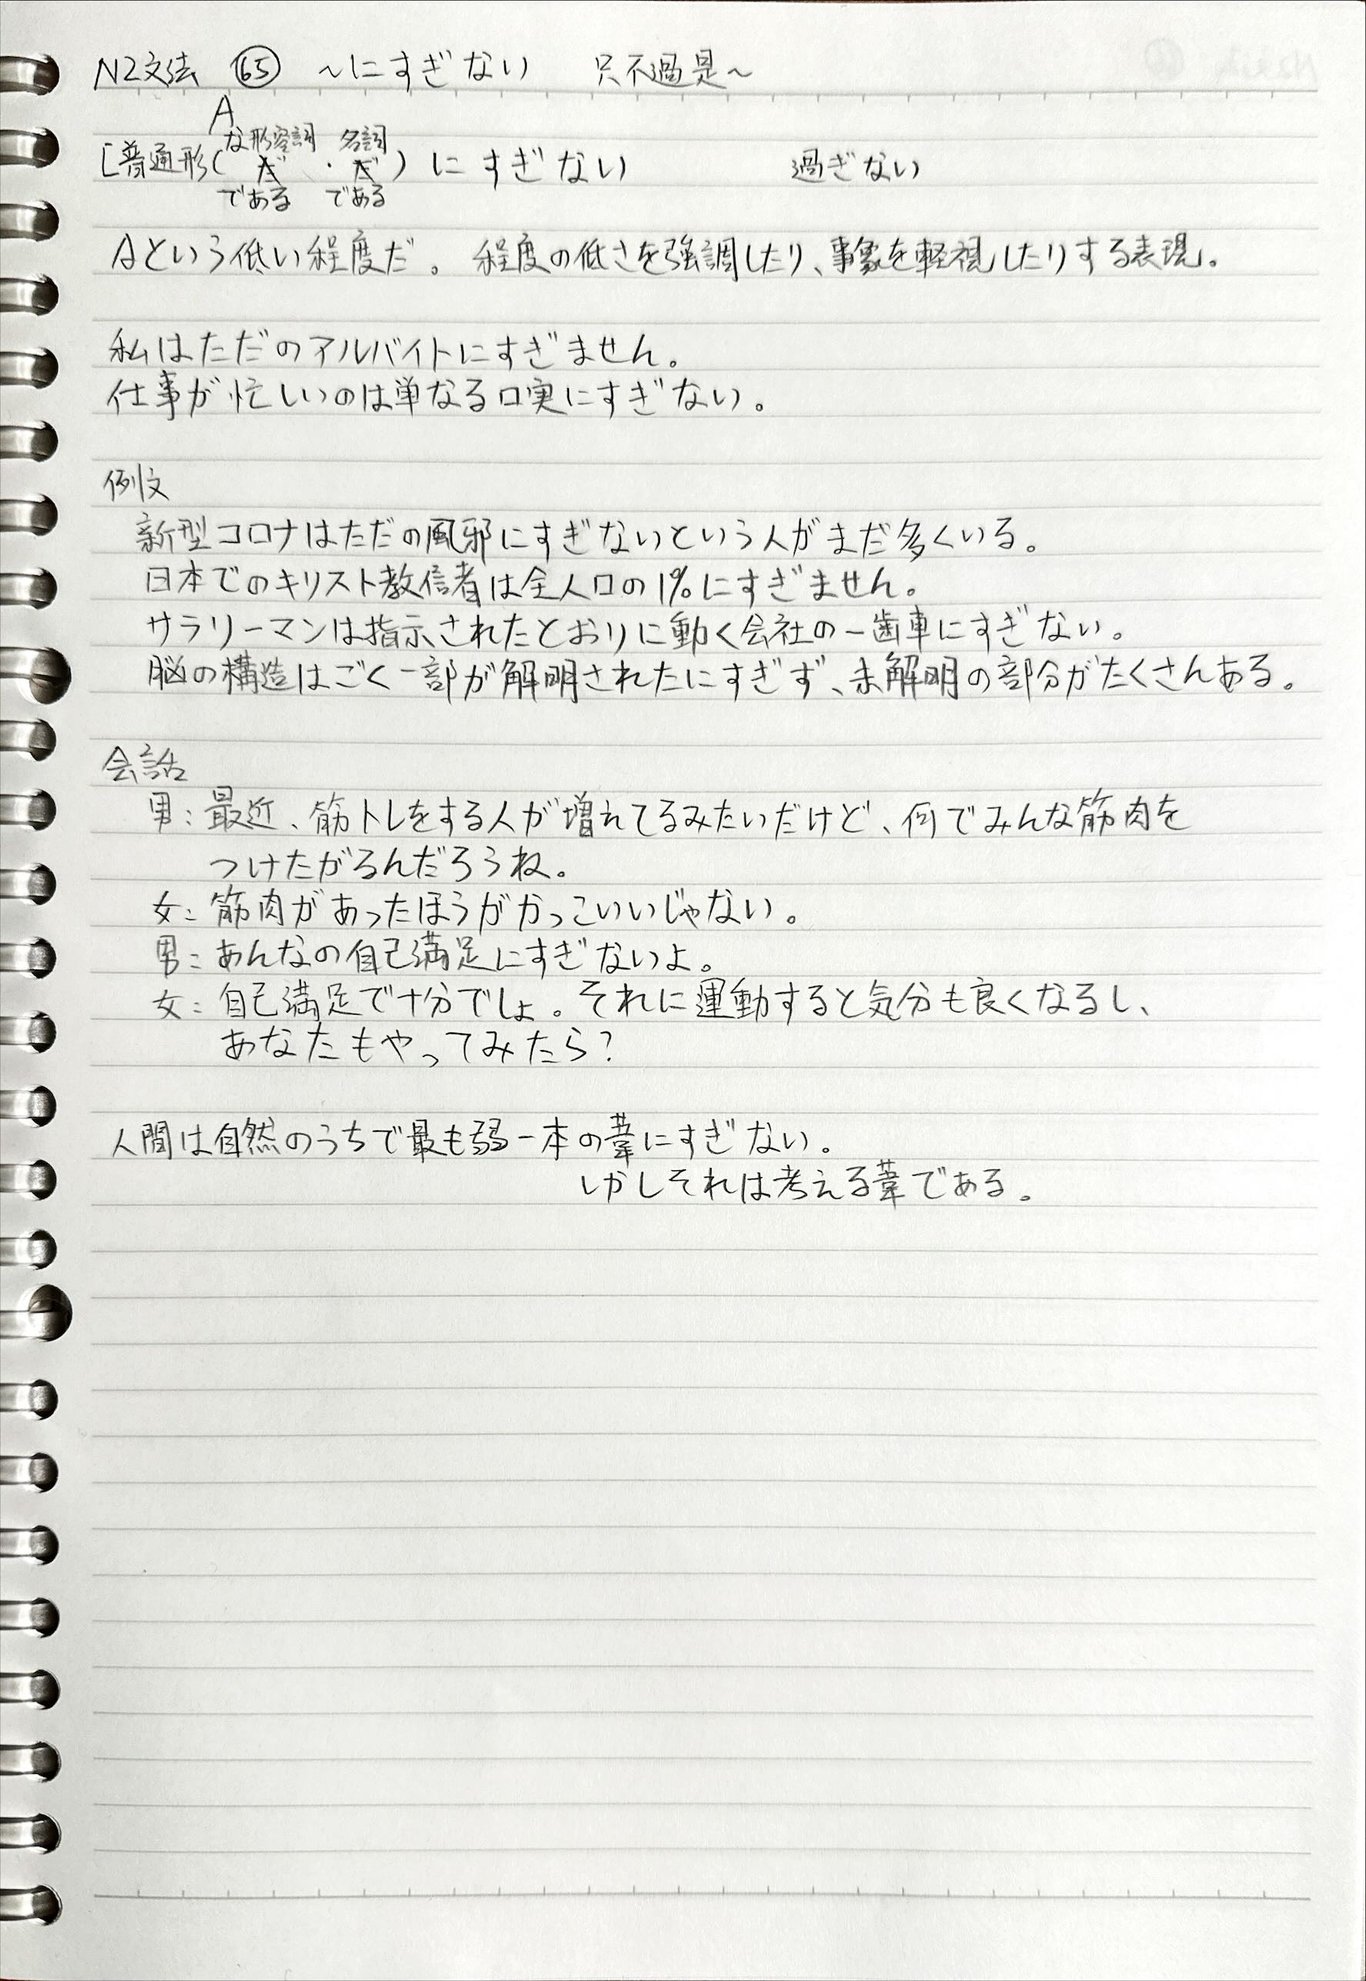 N2文法 ㊿ ~にすぎない 只不過是~
A
な形容詞 名詞
[普通形(だ・だ) にすぎない 過ぎない
である である
Aという低い程度だ。 程度の低さを強調したり、事象を軽視したりする表現。
私はただのアルバイトにすぎません。
仕事が忙しいのは単なる口実にすぎない。
例文
新型コロナはただの風邪にすぎないという人がまだ多くいる。
日本でのキリスト教信者は全人口の1%にすぎません。
サラリーマンは指示されたとおりに動く会社の一歯車にすぎない。
脳の構造はごく一部が解明されたにすぎず、未解明の部分がたくさんある。
会話
男:最近、筋トレをする人が増えてるみたいだけど、何でみんな筋肉を
つけたがるんだろうね。
女:筋肉があったほうがかっこいいじゃない。
男:あんなの自己満足にすぎないよ。
女:自己満足で十分でしょ。それに運動すると気分も良くなるし、
あなたもやってみたら?
人間は自然のうちで最も弱一本の葦にすぎない。
しかしそれは考える葦である。